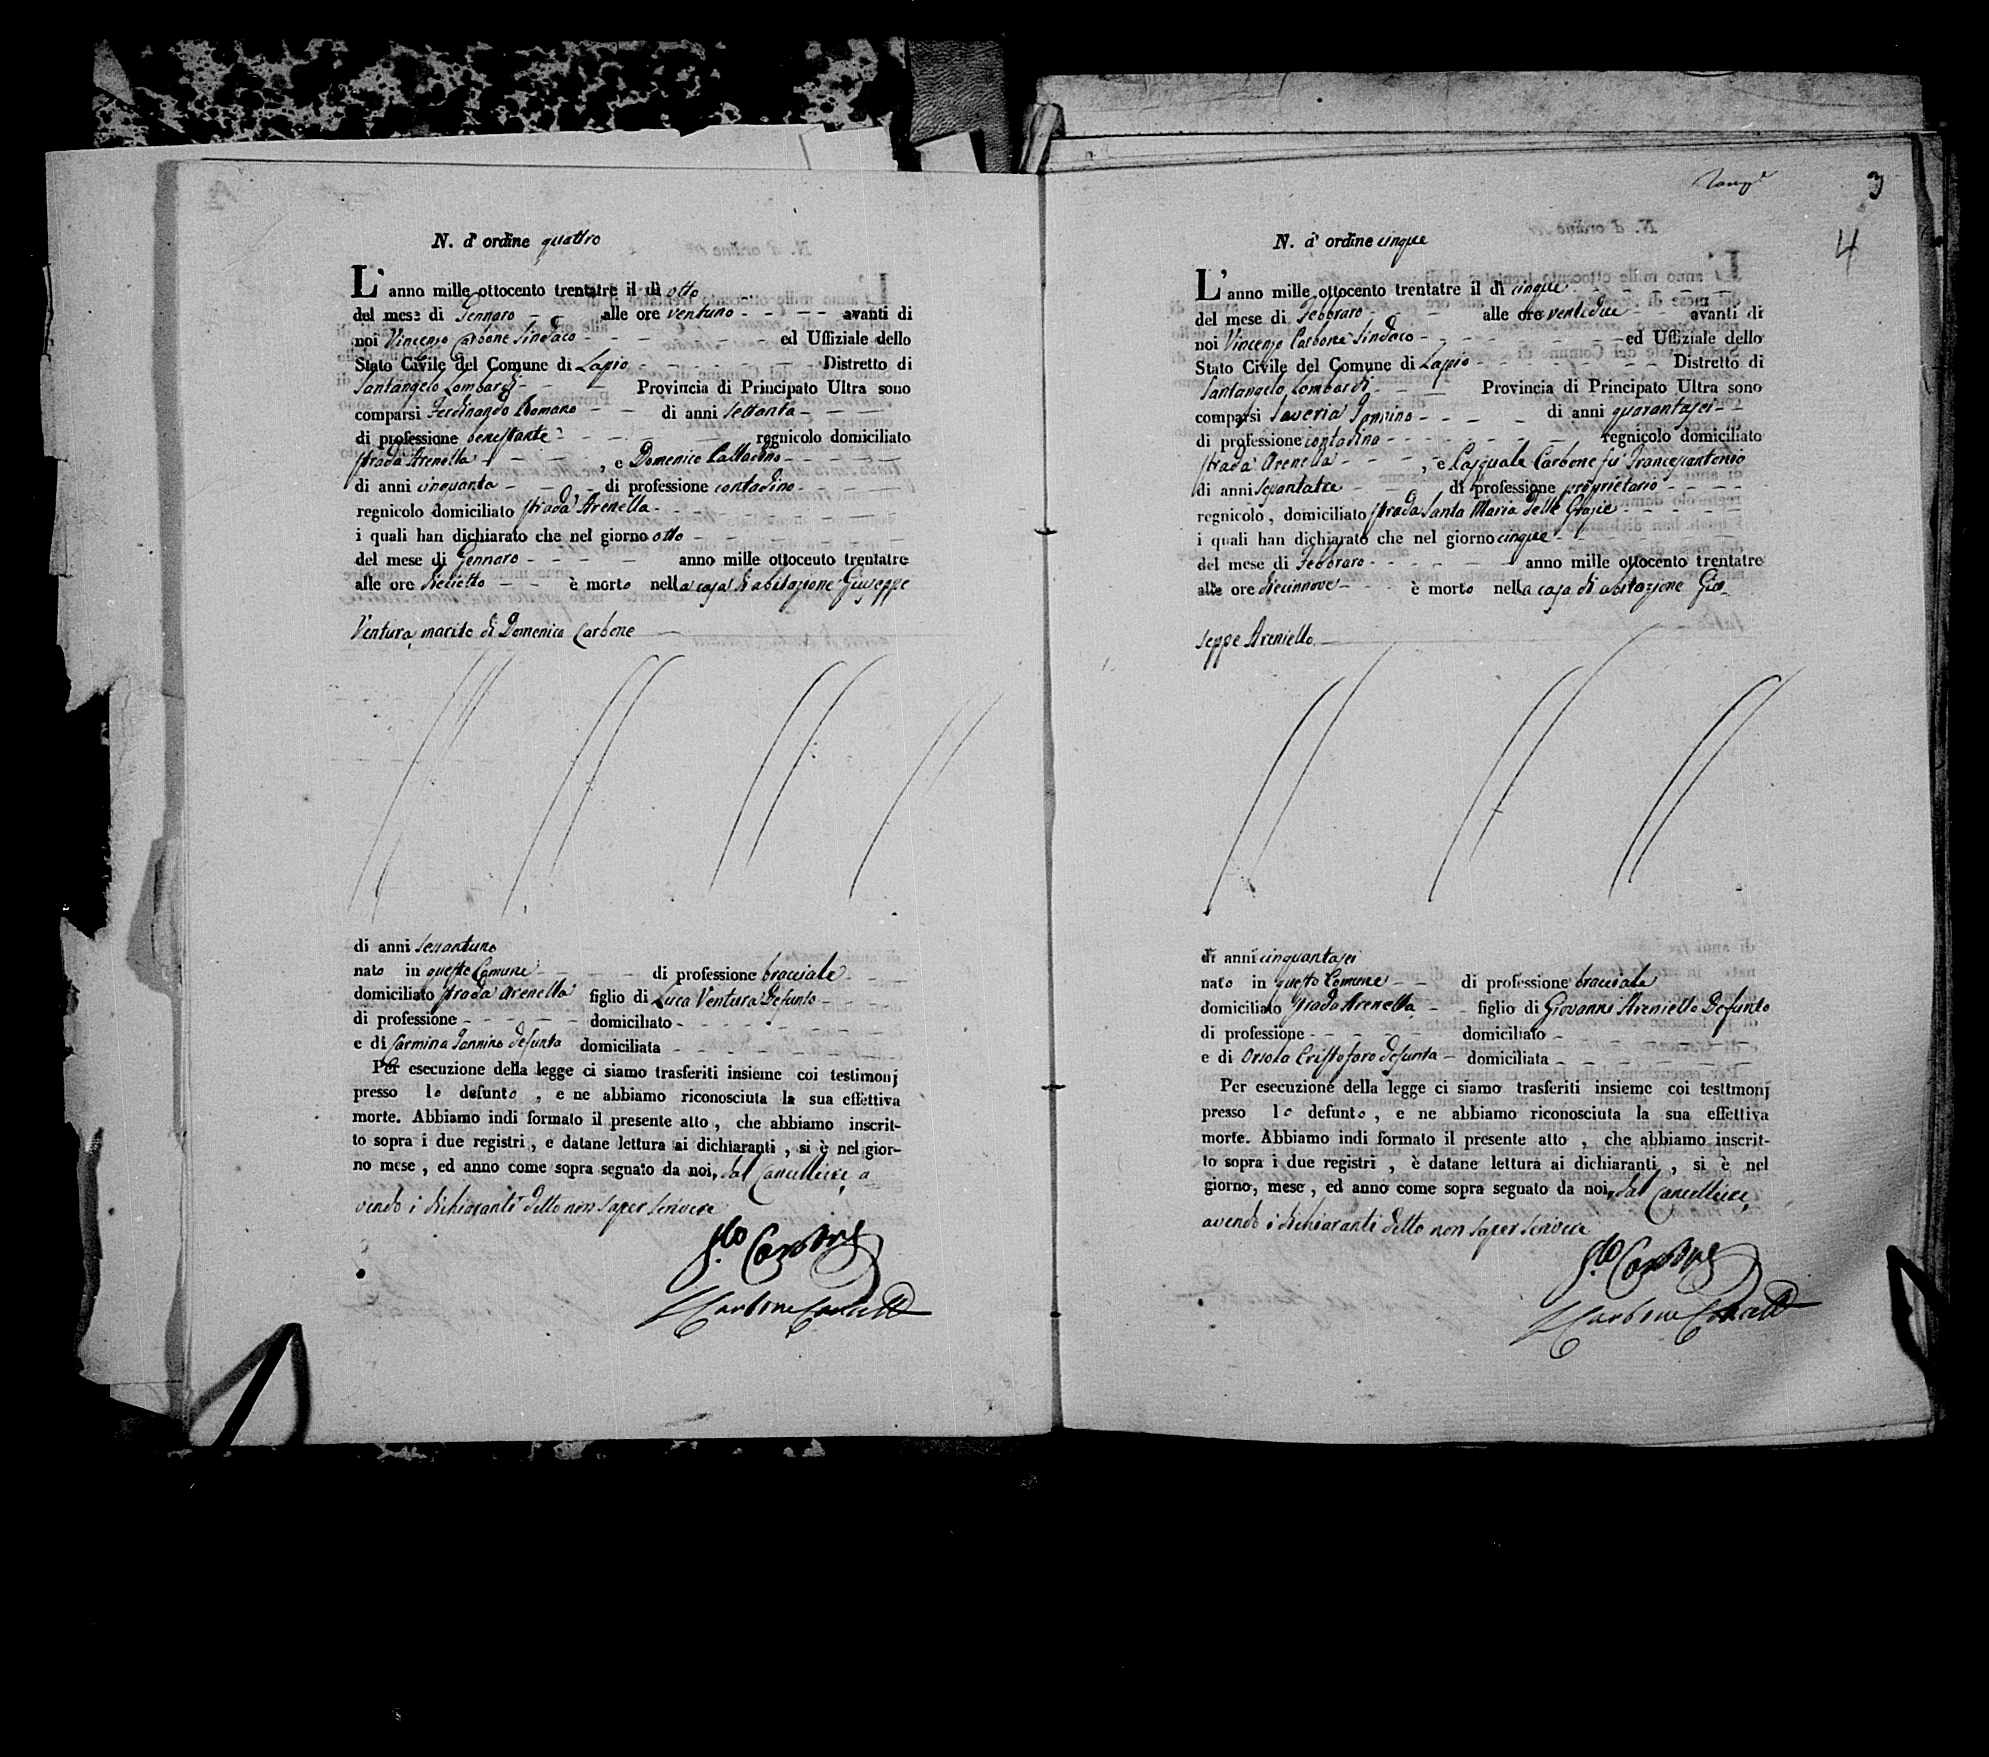 N. d' ordine quattro
L' anno mille ottocento trentatre il dì otto
del mese di Gennaro alle ore ventuno avanti di
noi Vincenzo Carbone Sindaco ed Uffiziale dello
Stato Civile del Comune di Lapio Distretto di
Santangelo Lombardi Provincia di Principato Ultra sono
comparsi Ferdinando Romano di anni settanta
di professione benestante regnicolo domiciliato
strada Arenella , e Domenico
di anni cinquanta di professione contadino
regnicolo domiciliato strada Arenella
i quali han dichiarato che nel giorno otto
del mese di Gennaro anno mille ottocento trentatre
alle ore dieciotto è morto nella casa di abitazione Giuseppe
Ventura marito di Domenica Carbone
di anni sessantuno
nato in questo Comune di professione bracciale
domiciliato strada Arenella figlio di Luca Ventura Defunto
di professione domiciliato
e di Carmina Iannino defunta domiciliata
Per esecuzione della legge ci siamo trasferiti insieme coi testimonj
presso lo defunto , e ne abbiamo riconosciuta la sua effettiva
morte. Abbiamo indi formato il presente atto , che abbiamo inscrit-
to sopra i due registri , e datane lettura ai dichiaranti , si è nel gior-
no mese , ed anno come sopra segnato da noi, dal Cancelliere, a
vendo i dichiaranti detto non saper scrivere
Carbone
Carbone Cancell
3
4
N. d' ordine cinque
L' anno mille ottocento trentatre il dì cinque
del mese di Febbraro alle ore ventidue avanti di
noi Vincenzo Carbone Sindaco ed Uffiziale dello
Stato Civile del Comune di Lapio Distretto di
Santangelo Lombardi Provincia di Principato Ultra sono
comparsi Saverio Iannino di anni quarantasei
di professione contadino regnicolo domiciliato
strada Arenella , e Pasquale Carbone fu Francescantonio
di anni di professione proprietario
regnicolo , domiciliato strada Santa Maria delle Grazie
i quali han dichiarato che nel giorno cinque
del mese di Febbraro anno mille ottocento trentatre
alle ore diecinnove è morto nella casa di abitazione Giu-
seppe Areniello
di anni cinquantasei
nato in questo Comune di professione bracciale
domiciliato strada Arenella figlio di Giovanni Areniello Defunto
di professione domiciliato
e di Orsola Cristofaro defunta domiciliata
Per esecuzione della legge ci siamo trasferiti insieme coi testimonj
presso lo defunto , e ne abbiamo riconosciuta la sua effettiva
morte. Abbiamo indi formato il presente atto , che abbiamo inscrit-
to sopra i due registri , è datane lettura ai dichiaranti , si è nel
giorno, mese , ed anno come sopra segnato da noi, dal Cancelliere,
avendo i dichiaranti detto non saper scrivere
Carbone
Carbone Cancell